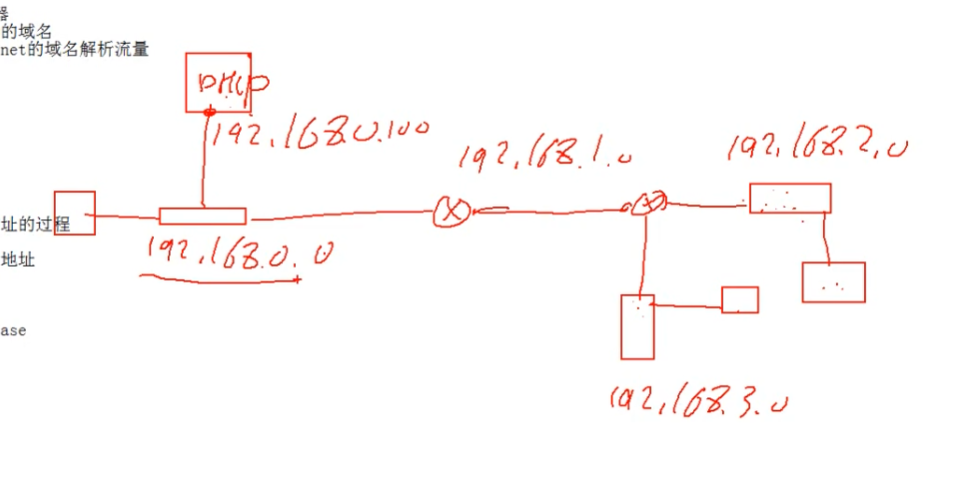 器
的域名
net的域名解析流量
DHCP
192.168.0.100
192.168.1.0
192.168.2.0
址的过程
192.168.0.0
地址
ase
192.168.3.0